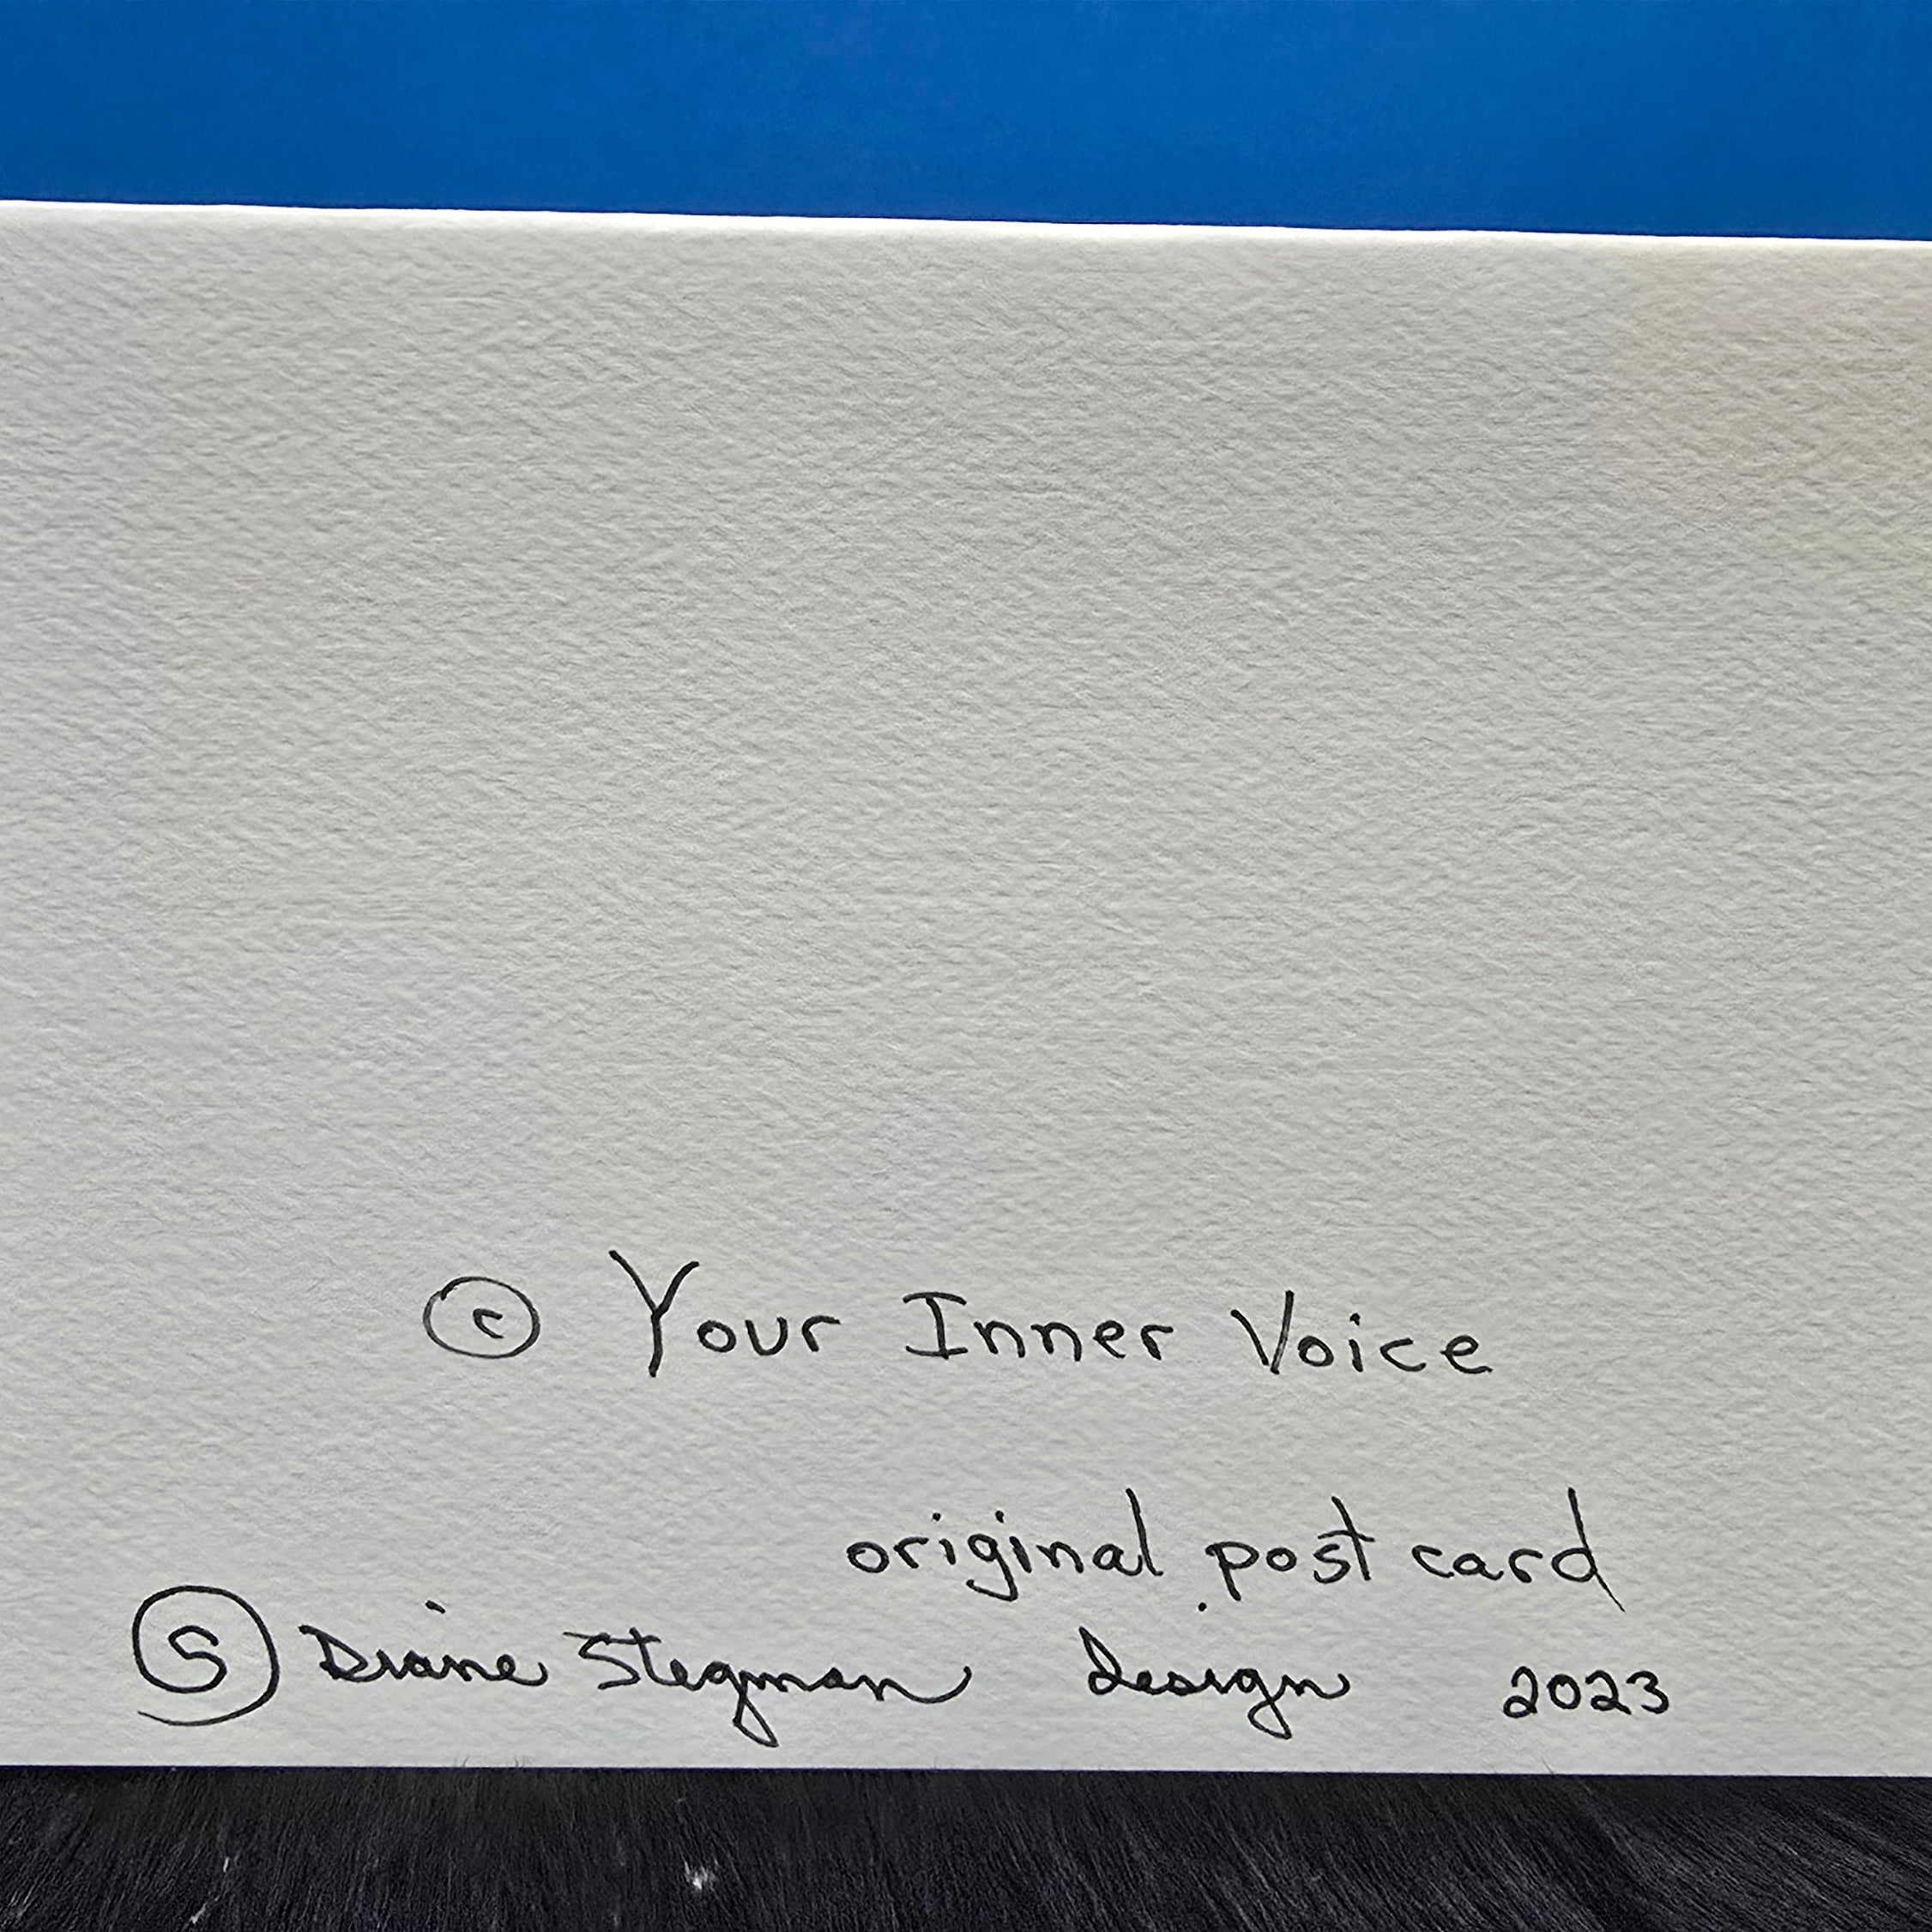 © Your Inner Voice
original post card
Ⓢ Diane Stegman design 2023